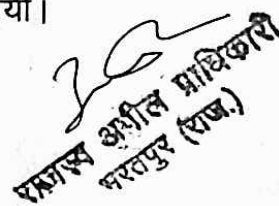 या।
राजस्व अपील प्राधिकारी
भरतपुर (राज.)